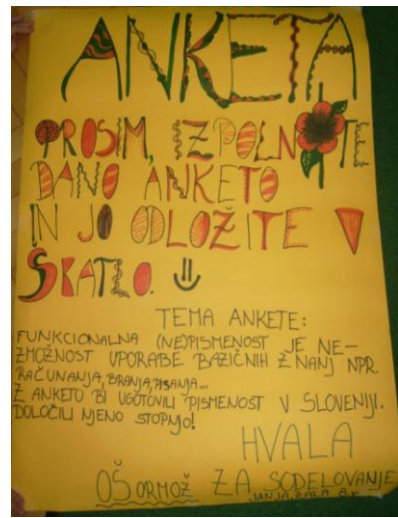 ANKETA
PROSIM, IZPOLNITE
DANO ANKETO
IN JO ODLOŽITE V
ŠKATLO.
TEMA ANKETE:
FUNKCIONALNA (NE)PISMENOST JE NE-
ZMOŽNOST UPORABE BAZIČNIH ZNANJ NPR.
RAČUNANJA, BRANJA, PISANJA...
Z ANKETO BI UGOTOVILI PISMENOST V SLOVENIJI.
DOLOČILI NJENO STOPNJO!
HVALA
OŠ ORMOŽ ZA SODELOVANJE